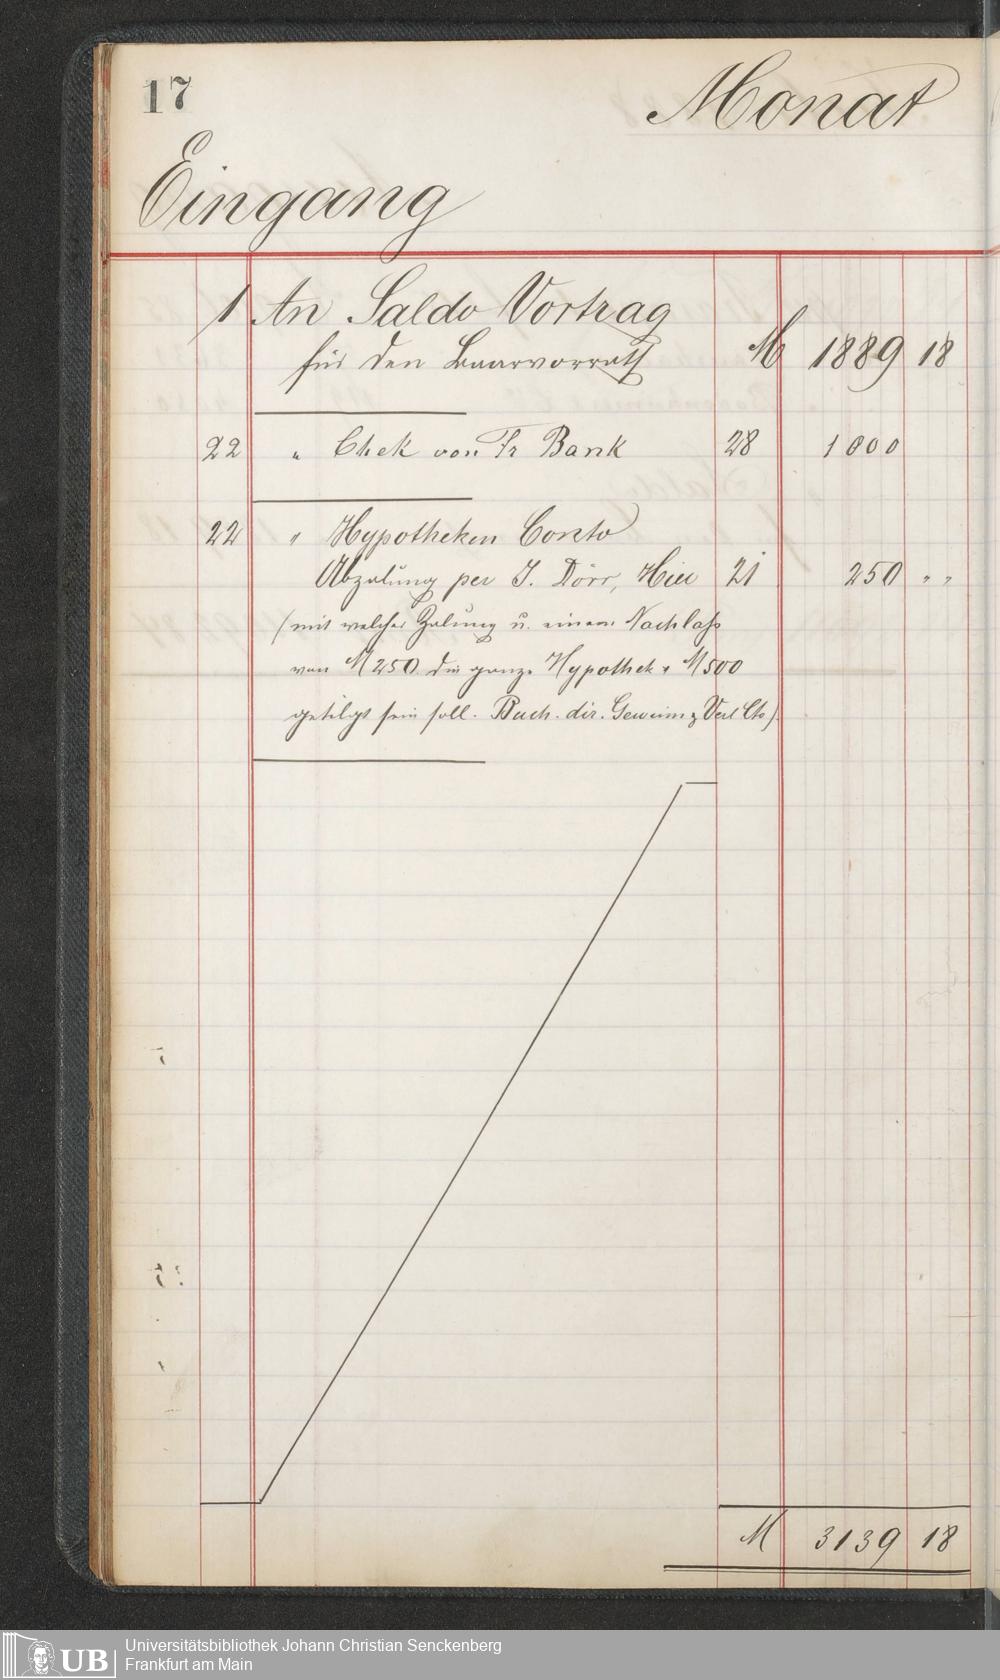 17
Monat
Eingang
1 An Saldo Vortrag
für den Baarvorrath M 1889 18
22 " Chek von Fr Bank 28 1000
22 " Hypotheken Conto
Abzalung per J. Dörr, Hier 21 250 " "
(mit welcher Zalung u. einem Nachlass
von M 250 die ganze Hypothek v M 500
getilgt sein soll. Buch. dir. Gewinn & Verl Cto)
M 3139 18
UB
Universitätsbibliothek Johann Christian Senckenberg
Frankfurt am Main